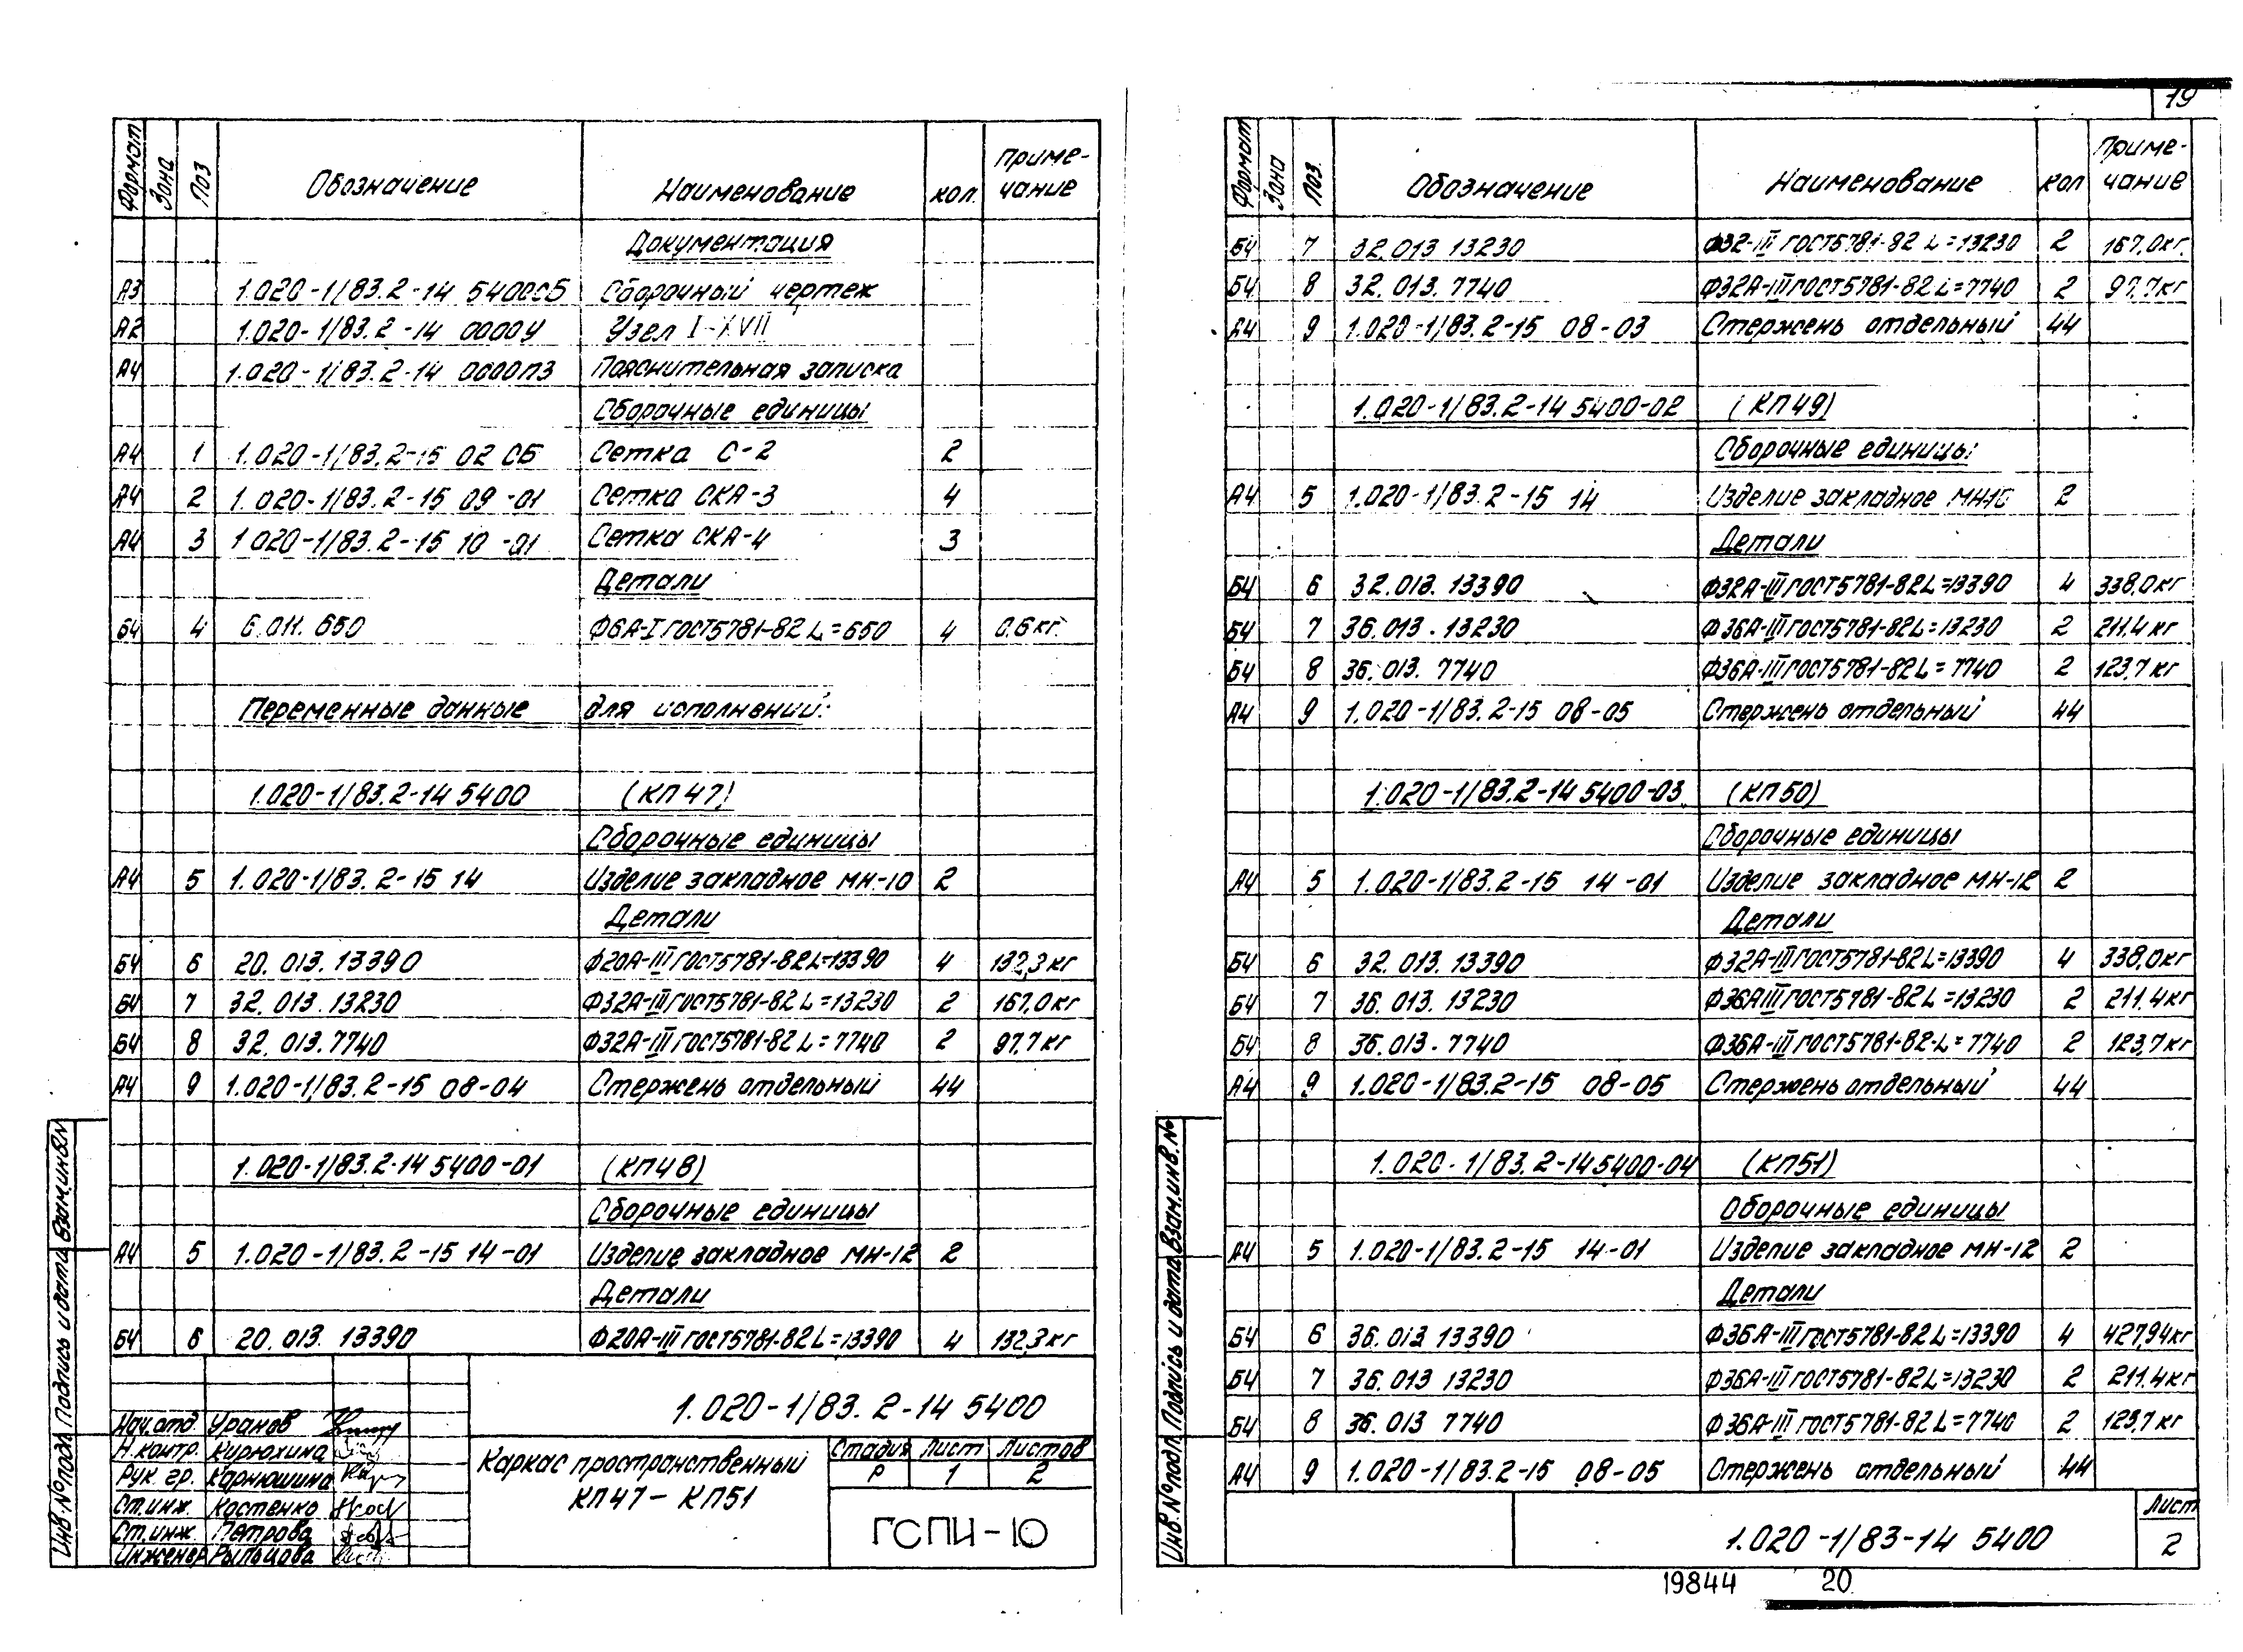 Формат Зона Поз Обозначение Наименование кол. Приме-
чание
Документация
А3 1.020-1/83.2-14 5400СБ Сборочный чертеж
А2 1.020-1/83.2-14 0000У Узел I-XVII
А4 1.020-1/83.2-14 0000ПЗ Пояснительная записка
Сборочные единицы
А4 1 1.020-1/83.2-15 02 СБ Сетка С-2 2
А4 2 1.020-1/83.2-15 09-01 Сетка СКА-3 4
А4 3 1 020-1/83.2-15 10-01 Сетка СКА-4 3
Детали
БЧ 4 6.011.650 Ф6А-I ГОСТ5781-82 L=650 4 0.6 кг.
Переменные данные для исполнений:
1.020-1/83.2-14 5400 (КП47)
Сборочные единицы
А4 5 1.020-1/83.2-15 14 Изделие закладное МН-10 2
Детали
БЧ 6 20.013.13390 Ф20А-III ГОСТ5781-82 L=13390 4 132,3 кг
БЧ 7 32.013.13230 Ф32А-III ГОСТ5781-82 L=13230 2 167.0 кг
БЧ 8 32.013.7740 Ф32А-III ГОСТ5781-82 L=7740 2 97.7 кг
А4 9 1.020-1/83.2-15 08-04 Стержень отдельный 44
1.020-1/83.2-14 5400-01 (КП48)
Сборочные единицы
А4 5 1.020-1/83.2-15 14-01 Изделие закладное МН-12 2
Детали
БЧ 6 20.013.13390 Ф20А-III ГОСТ5781-82 L=13390 4 132,3 кг
1.020-1/83.2-14 5400
Нач.отд. Уранов
Н.контр. Кирюхина
Рук. гр. Карнюшина
Ст.инж. Костенко
Ст.инж. Петрова
Инженер Рыльцова
Каркас пространственный
КП47-КП51
Стадия Лист Листов
Р 1 2
ГСПИ-10
Инв.№подл. Подпись и дата Взам.инв.N
19
Формат Зона Поз. Обозначение Наименование кол Приме-
чание
БЧ 7 32.013 13230 Ф32-III ГОСТ5781-82 L=13230 2 167,0кг.
БЧ 8 32.013.7740 Ф32А-III ГОСТ5781-82 L=7740 2 97,7кг
А4 9 1.020-1/83.2-15 08-03 Стержень отдельный 44
1.020-1/83.2-14 5400-02 (КП49)
Сборочные единицы
А4 5 1.020-1/83.2-15 14 Изделие закладное МН10 2
Детали
БЧ 6 32.013.13390 Ф32А-III ГОСТ5781-82 L=13390 4 338,0кг
БЧ 7 36.013.13230 Ф36А-III ГОСТ5781-82 L=13230 2 211.4 кг
БЧ 8 36.013.7740 Ф36А-III ГОСТ5781-82 L=7740 2 123,7 кг
А4 9 1.020-1/83.2-15 08-05 Стержень отдельный 44
1.020-1/83.2-14 5400-03 (КП50)
Сборочные единицы
А4 5 1.020-1/83.2-15 14-01 Изделие закладное МН-12 2
Детали
БЧ 6 32.013.13390 Ф32А-III ГОСТ5781-82 L=13390 4 338,0кг
БЧ 7 36.013.13230 Ф36АIII ГОСТ5781-82 L=13230 2 211.4кг
БЧ 8 36.013.7740 Ф36А-III ГОСТ5781-82-L=7740 2 123,7кг
А4 9 1.020-1/83.2-15 08-05 Стержень отдельный 44
1.020-1/83.2-14 5400-04 (КП51)
Сборочные единицы
А4 5 1.020-1/83.2-15 14-01 Изделие закладное МН-12 2
Детали
БЧ 6 36.013 13390 Ф36А-III ГОСТ5781-82 L=13390 4 427,94кг
БЧ 7 36.013 13230 Ф36А-III ГОСТ5781-82 L=13230 2 211.4кг
БЧ 8 36.013 7740 Ф36А-III ГОСТ5781-82 L=7740 2 123,7 кг
А4 9 1.020-1/83.2-15 08-05 Стержень отдельный 44
1.020-1/83-14 5400
Лист
2
Инв.№подл. Подпись и дата Взам.инв.№
19844 20